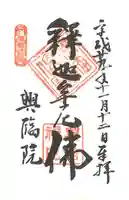 平成廿五年十一月十二日 拜
釋迦牟尼佛
興臨院